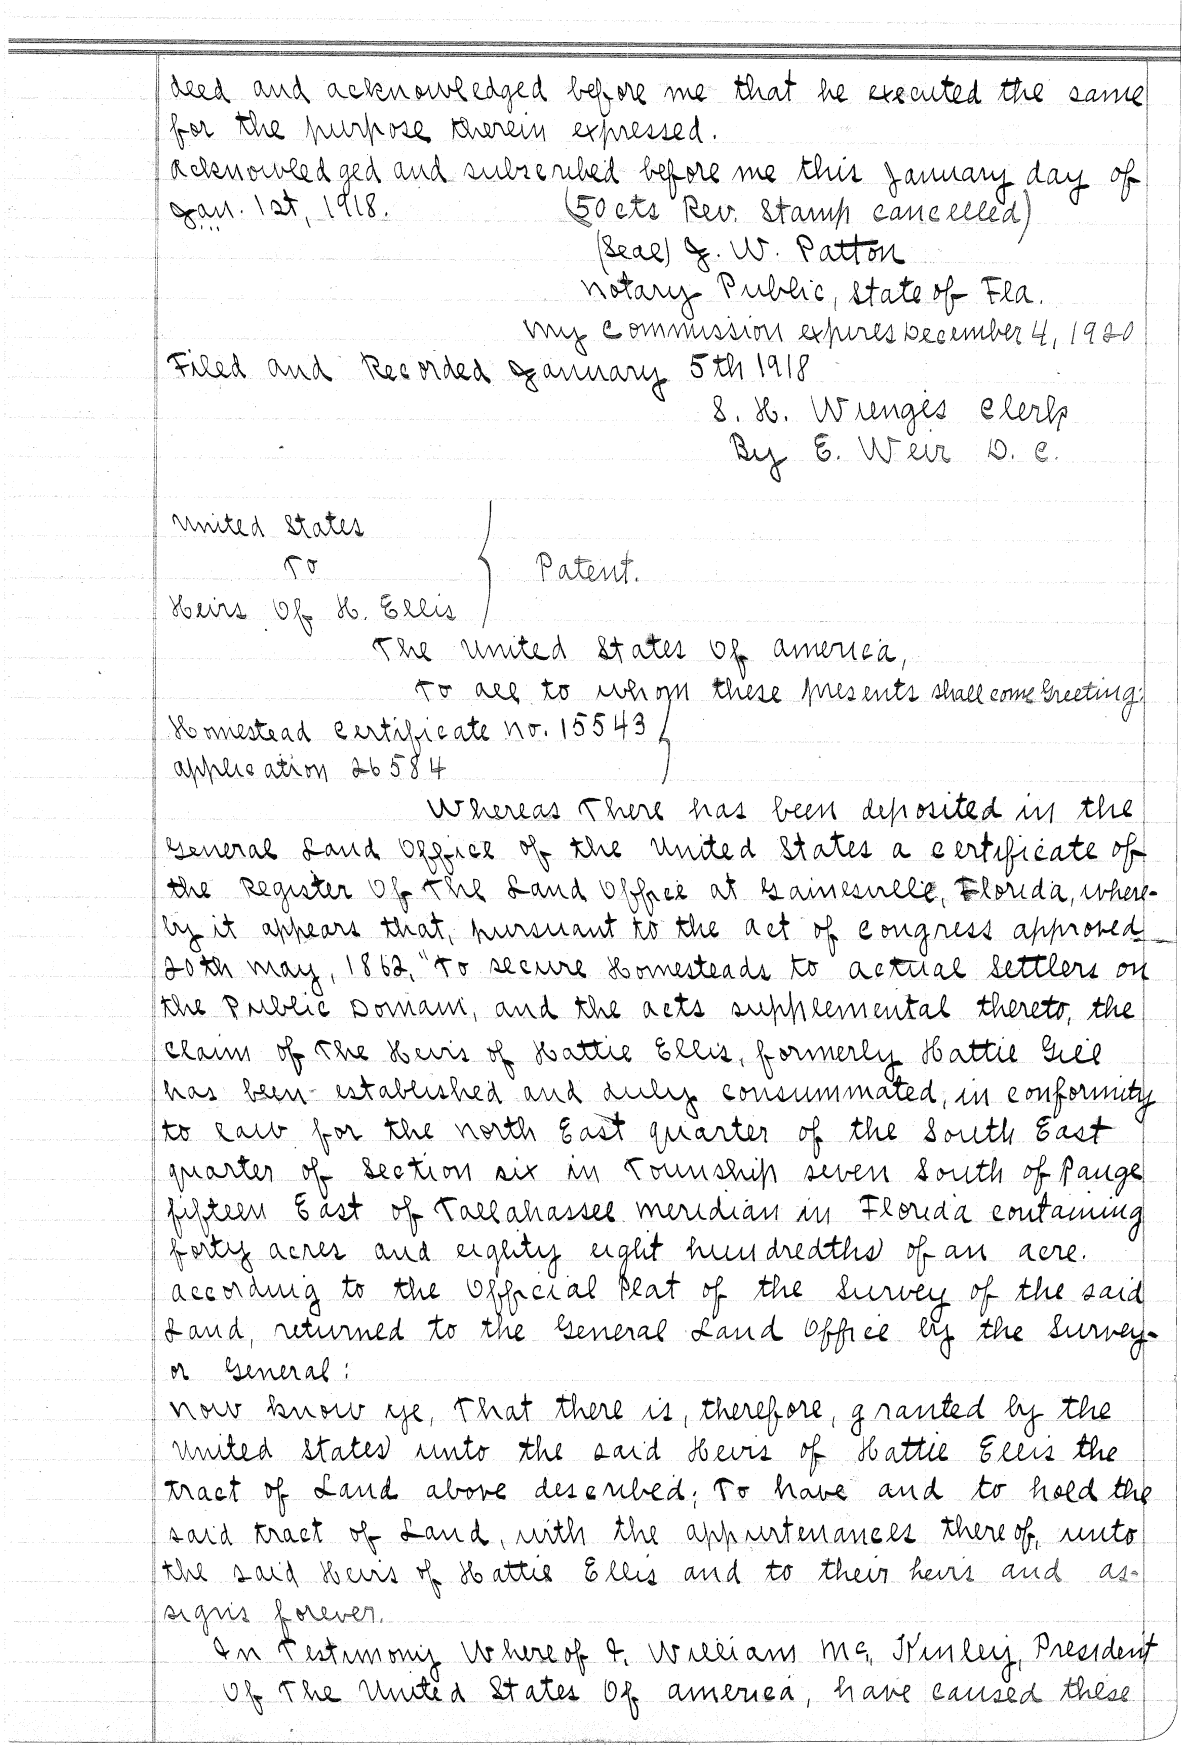 deed and acknowledged before me that he executed the same
for the purpose therein expressed.
acknowledged and subscribed before me this January day of
Jan. 1st, 1918. (50cts Rev. Stamp cancelled)
(Seal) J. W. Patton
Notary Public, State of Fla.
My Commission expires December 4, 1920
Filed and Recorded January 5th 1918
S. H. Wienges Clerk
By E. Weir D. C.
United States
To
Heirs Of H. Ellis
Patent.
The United States Of America,
To all to whom these presents shall come Greeting:
Homestead Certificate No. 15543
Application 26584
Whereas There has been deposited in the
General Land Office of the United States a certificate of
the Register Of The Land Office at Gainesville, Florida, where-
by it appears that, pursuant to the act of Congress approved
20th May, 1862, "To secure Homesteads to actual Settlers on
the Public Domain, and the acts supplemental thereto, the
claim of The Heirs of Hattie Ellis, formerly Hattie Gill
has been established and duly consummated, in conformity
to law for the North East quarter of the South East
quarter of Section six in Township seven South of Range
fifteen East of Tallahassee Meridian in Florida containing
forty acres and eighty eight hundredths of an acre.
according to the Official Plat of the Survey of the said
Land, returned to the General Land Office by the Survey-
or General:
Now know ye, That there is, therefore, granted by the
United States unto the said Heirs of Hattie Ellis the
tract of Land above described; To have and to hold the
said tract of Land, with the appurtenances thereof, unto
the said Heirs of Hattie Ellis and to their heirs and as-
signs forever.
In Testimony Whereof I, William Mc, Kinley, President
Of The United States Of America, have caused these